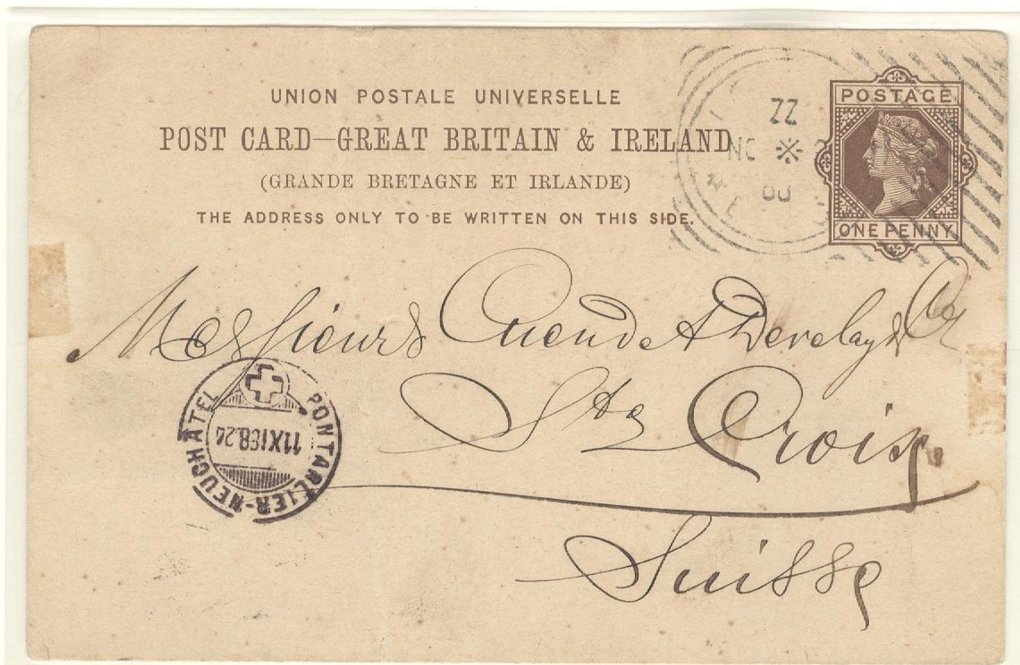 UNION POSTALE UNIVERSELLE
POST CARD—GREAT BRITAIN & IRELAND
(GRANDE BRETAGNE ET IRLANDE)
THE ADDRESS ONLY TO BE WRITTEN ON THIS SIDE.
POSTAGE
ONE PENNY
22
NO
88
Messieurs Cuendet Derelay & Cie
Ste Croix
Suisse
PONTARLIER-NEUCHÂTEL
11XI88.24